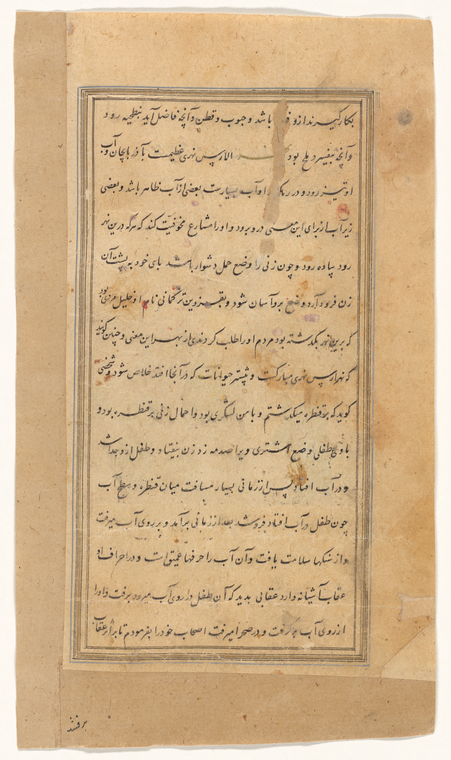 بکار گیرند از و باشد و حبوب و قطن و آنچه فاضل آید بنبطیه رود
و آنچه بود الارس نهری عظیمست با آذربایجان و آب
او تیز رود و در او آب بسیارست بعضی از آب ظاهر باشد و بعضی
زیر آب از برای این معنی درو برود و او را مشارع مخوفیت کند که هر که درین نهر
رود پیاده رود و چون زنی را وضع حمل دشوار باشد پای خود به پشت آن
زن فرود آرد وضع برو آسان شود و بقزوین ترکمانی نام او خلیل مردی بود
که برین نهر بگذشته بود مردم او را طلب کردندی از بهر این معنی و چنین گویند
که نهر ارس نهری مبارکست و بیشتر حیوانات که در آنجا افتد خلاص شود و شخصی
گوید که بر قنطره میگذشتم و با من لشگری بود و احمال زنی بر قنطره بود و
با وی طفلی وضع اشتری ویرا صدمه زد زن بیفتاد و طفل ازو جدا شد
و در آب افتاد پس از زمانی بسیار مسافت میان قنطره و سطح آب
چون طفل در آب افتاد فروشد بعد از زمانی برآمد و بر روی آب میرفت
و از سنگها سلامت یافت و آن آب را حرفها عمیق است و در احراف او
عقاب آشیانه دارد عقابی بدید که آن طفل در روی آب میرود برفت و او را
از روی آب بر گرفت و در صحرا میرفت اصحاب خود را بفرمودم تا بر اثر عقاب
برفتند